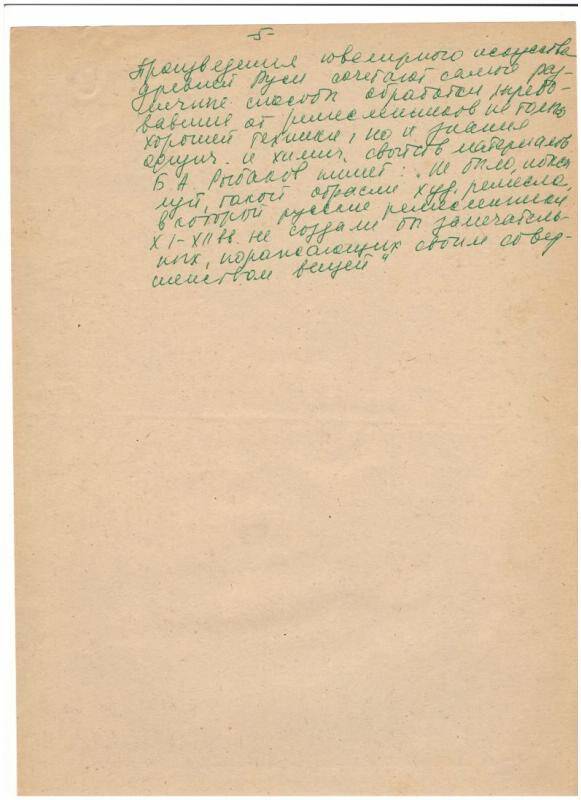 -5-
Произведения ювелирного искусства
древней Руси сочетают самые раз-
личные способы обработки, требо-
вавшие от ремесленников не только
хорошей техники, но и знания
физич. и химич. свойств материалов
Б. А. Рыбаков пишет: „Не было, пожа-
луй, такой отрасли худ. ремесла,
в которой русские ремесленники
XI-XII вв. не создали бы замечатель-
ных, поражающих своим совер-
шенством вещей"